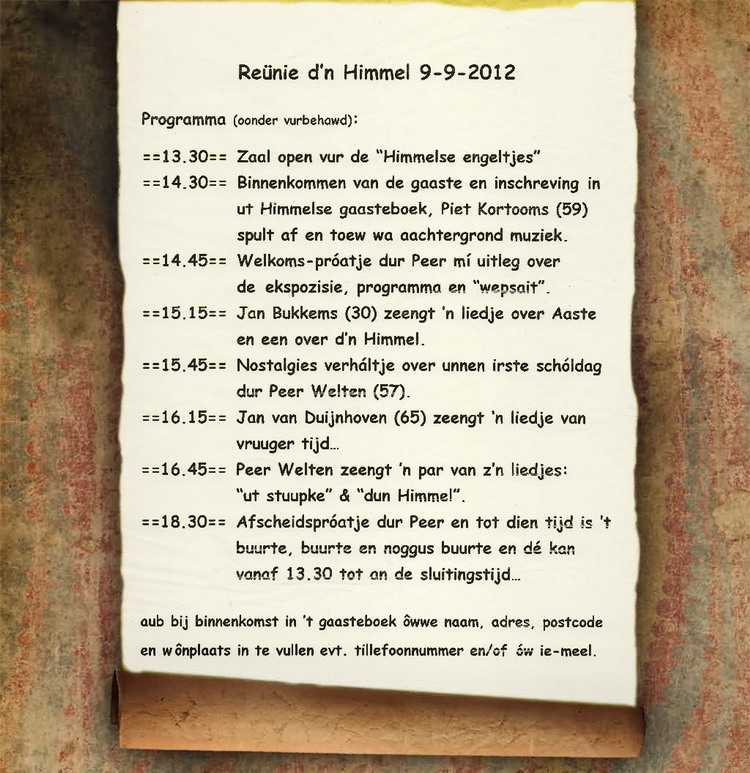 Reünie d'n Himmel 9-9-2012
Programma (oonder vurbehawd):
==13.30== Zaal open vur de "Himmelse engeltjes"
==14.30== Binnenkommen van de gaaste en inschreving in
ut Himmelse gaasteboek, Piet Kortooms (59)
spult af en toew wa aachtergrond muziek.
==14.45== Welkoms-próatje dur Peer mí uitleg over
de ekspozisie, programma en "wepsait".
==15.15== Jan Bukkems (30) zeengt 'n liedje over Aaste
en een over d'n Himmel.
==15.45== Nostalgies verháltje over unnen irste schóldag
dur Peer Welten (57).
==16.15== Jan van Duijnhoven (65) zeengt 'n liedje van
vruuger tijd...
==16.45== Peer Welten zeengt 'n par van z'n liedjes:
"ut stuupke" & "dun Himmel".
==18.30== Afscheidspróatje dur Peer en tot dien tijd is 't
buurte, buurte en noggus buurte en dé kan
vanaf 13.30 tot an de sluitingstijd...
aub bij binnenkomst in 't gaasteboek ôwwe naam, adres, postcode
en wônplaats in te vullen evt. tillefoonnummer en/of ów ie-meel.